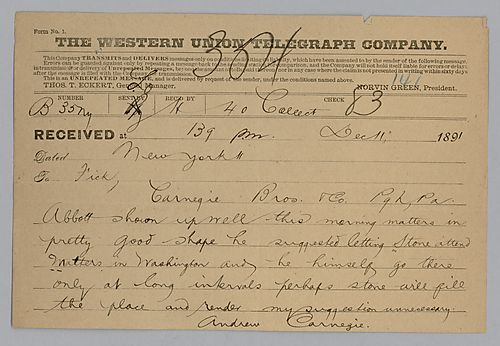 Form No. 1.
THE WESTERN UNION TELEGRAPH COMPANY.
This Company TRANSMITS and DELIVERS messages only on conditions limiting its liability, which have been assented to by the sender of the following message.
Errors can be guarded against only by repeating a message back to the sending station for comparison, and the Company will not hold itself liable for errors or delays
in transmission or delivery of Unrepeated Messages,
after the message is filed with the Company for transmission.
This is an UNREPEATED MESSAGE, and is delivered by request of the sender, under the conditions named above.
THOS. T. ECKERT, General Manager. NORVIN GREEN, President.
NUMBER SENT BY REC'D BY CHECK
B 35 Ny 40 Collect
RECEIVED at 139 pm. Dec 11 1891
Dated New York 11
To Frick,
Carnegie Bros. & Co. Pgh, Pa.
Abbott shown up well this morning matters in
pretty good shape he suggested letting Stone attend
Matters in Washington and he himself go there
only at long intervals perhaps stone will fill
the place and render my suggestion unnecessary.
Andrew Carnegie.